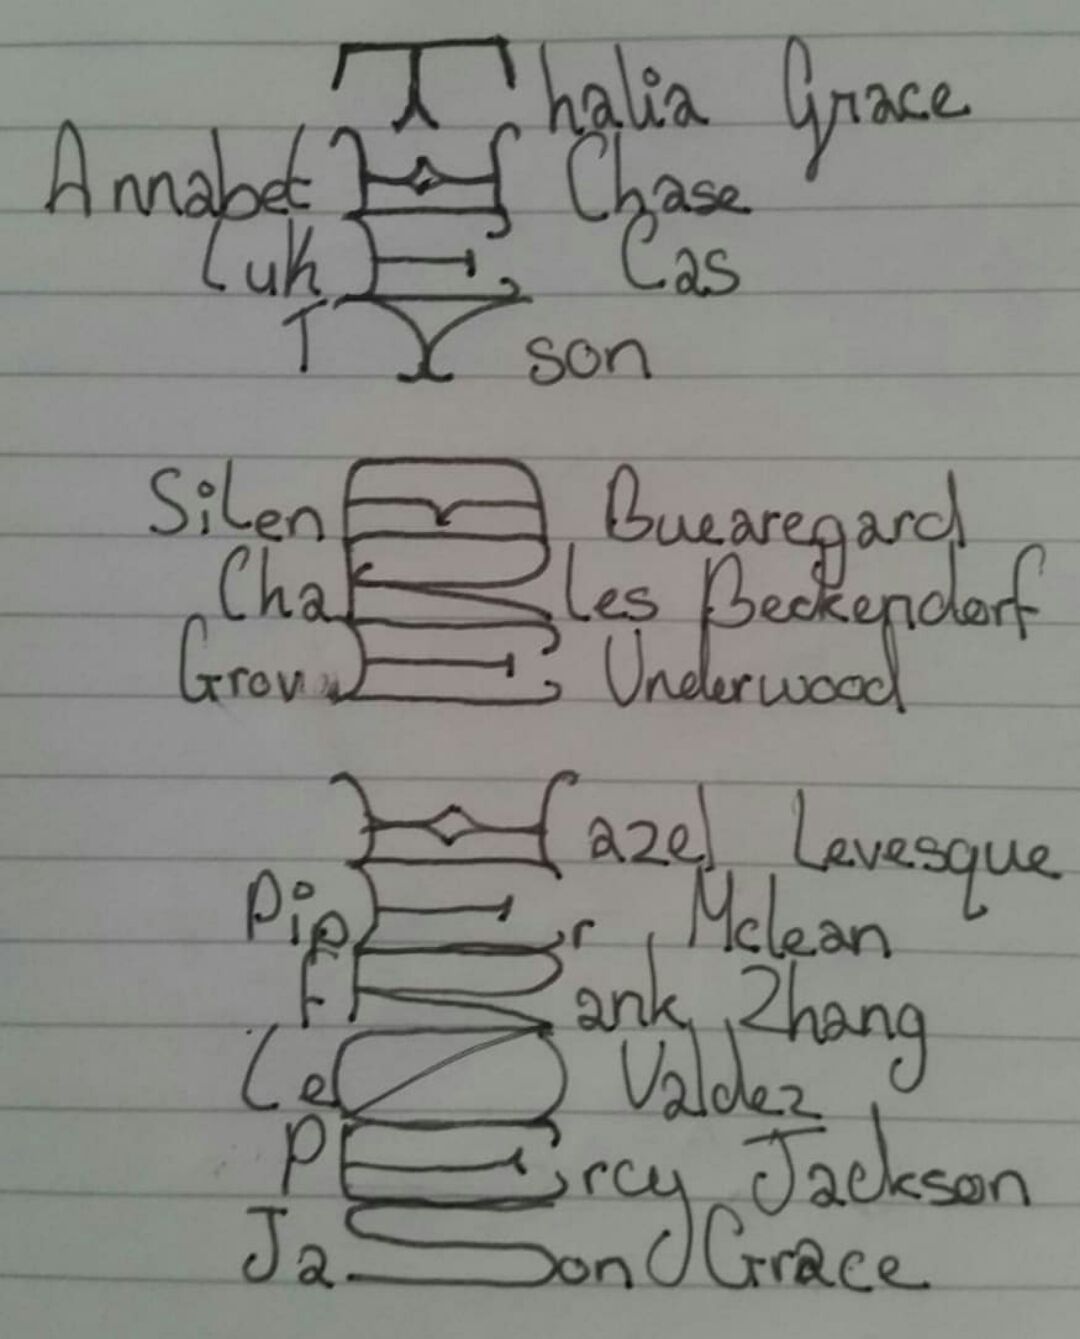 Thalia Grace
Annabeth Chase
Luke Cas
Tyson
Silena Buearegard
Charles Beckendorf
Grover Underwood
Hazel Levesque
Piper Mclean
Frank Zhang
Leo Valdez
Percy Jackson
Jason Grace